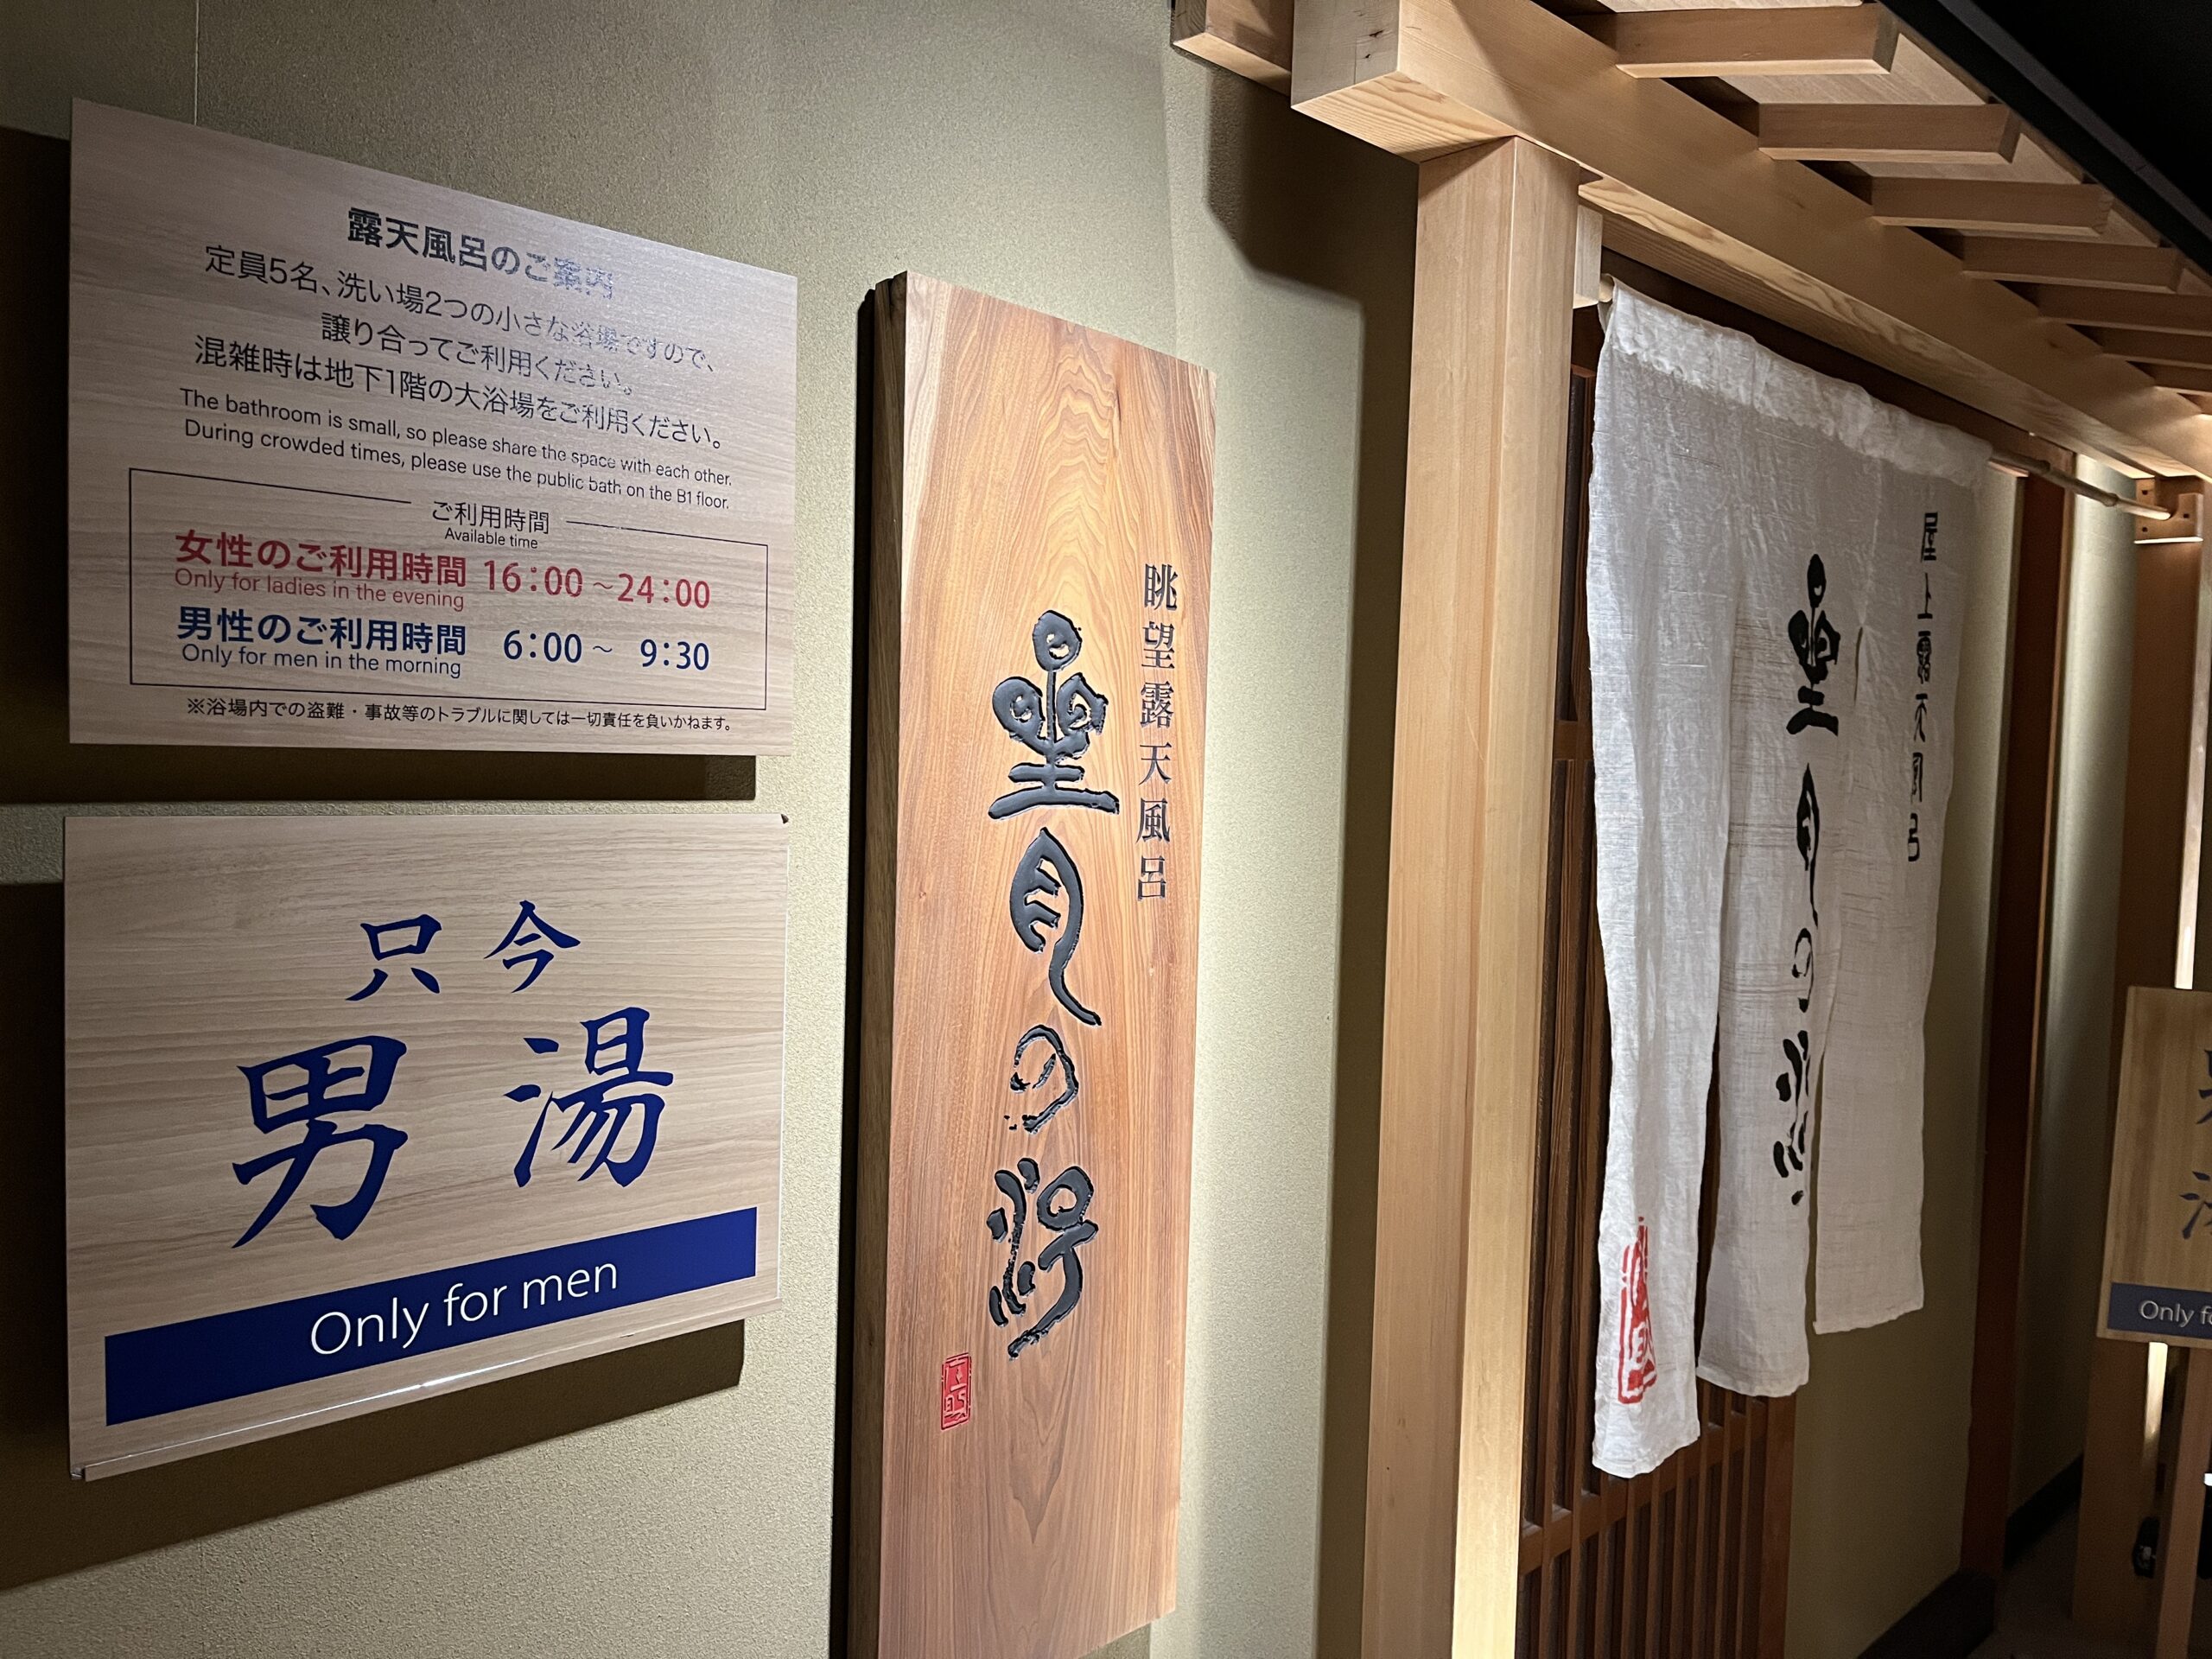 露天風呂のご案内
定員5名、洗い場2つの小さな浴場ですので、
譲り合ってご利用ください。
混雑時は地下1階の大浴場をご利用ください。
The bathroom is small, so please share the space with each other.
During crowded times, please use the public bath on the B1 floor.
ご利用時間
Available time
女性のご利用時間 16:00~24:00
Only for ladies in the evening
男性のご利用時間 6:00~ 9:30
Only for men in the morning
※浴場内での盗難・事故等のトラブルに関しては一切責任を負いかねます。
只今
男湯
Only for men
眺望露天風呂
星見の湯
屋上露天風呂
星見の湯
Only